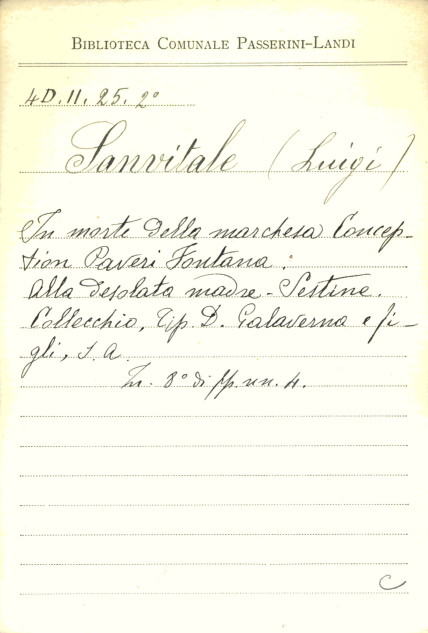 BIBLIOTECA COMUNALE PASSERINI-LANDI
4D. II. 25. 2°
Sanvitale (Luigi)
In morte della marchesa Concep-
tion Paveri Fontana:
Alla desolata madre - Sestine.
Collecchio, Tip. D. Galaverna e fi-
gli, s. a.
In. 8° di pp. nn. 4.
C